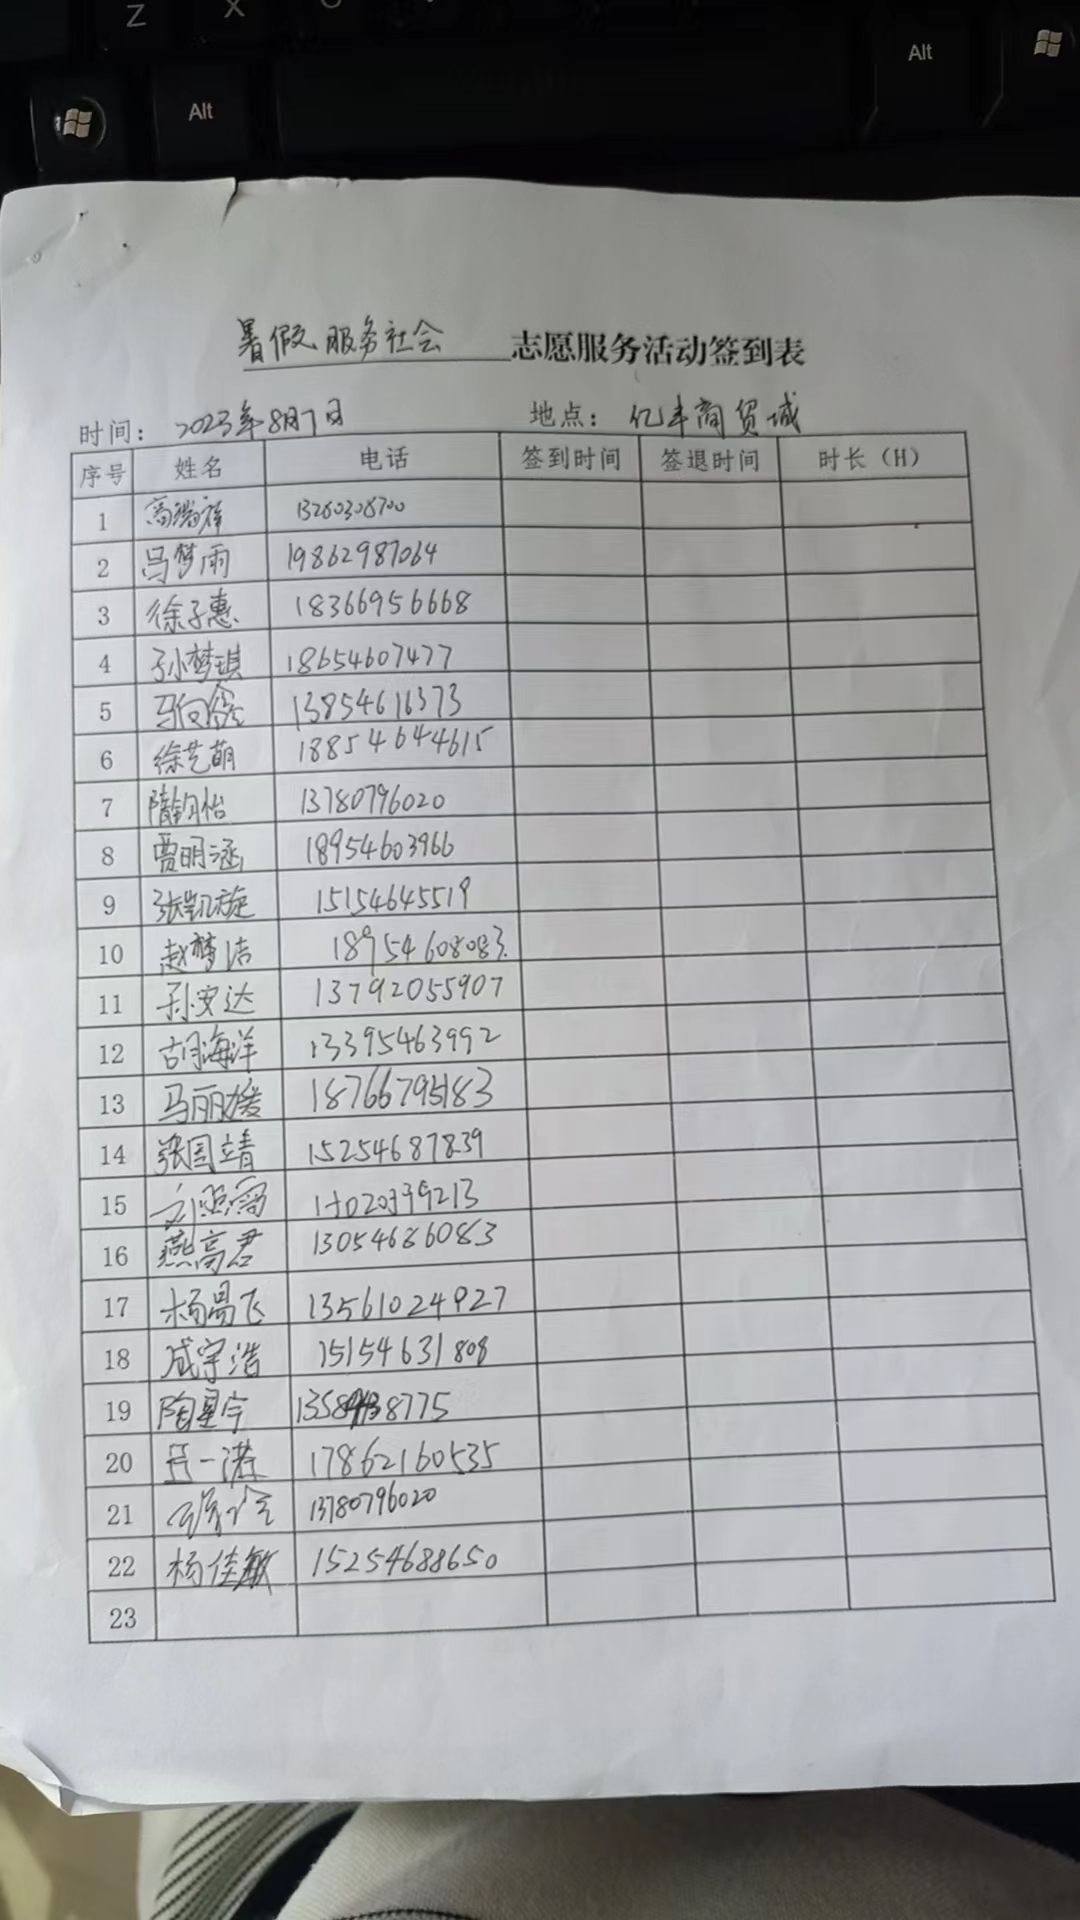 Z X
Alt
Alt
暑假服务社会 志愿服务活动签到表
时间: 2023年8月7日 地点: 亿丰商贸城
序号 姓名 电话 签到时间 签退时间 时长（H）
1 高瑞祥 13280308700
2 吕梦雨 19862987064
3 徐子惠 18366956668
4 孙梦琪 18654607477
5 马向鑫 13854611373
6 徐艺萌 18854644615
7 隋钧怡 13780796020
8 贾明涵 18954603966
9 张凯旋 15154645519
10 赵梦洁 18954608083
11 孙安达 13792055907
12 胡海洋 13395463992
13 马丽媛 18766795183
14 张国靖 15254687839
15
16 燕高君 13054686083
17 杨昌飞 13561024927
18 成宇浩 15154631808
19 陶星宇
20 吕一港 17862160535
21 13780796020
22 杨佳敏 15254688650
23